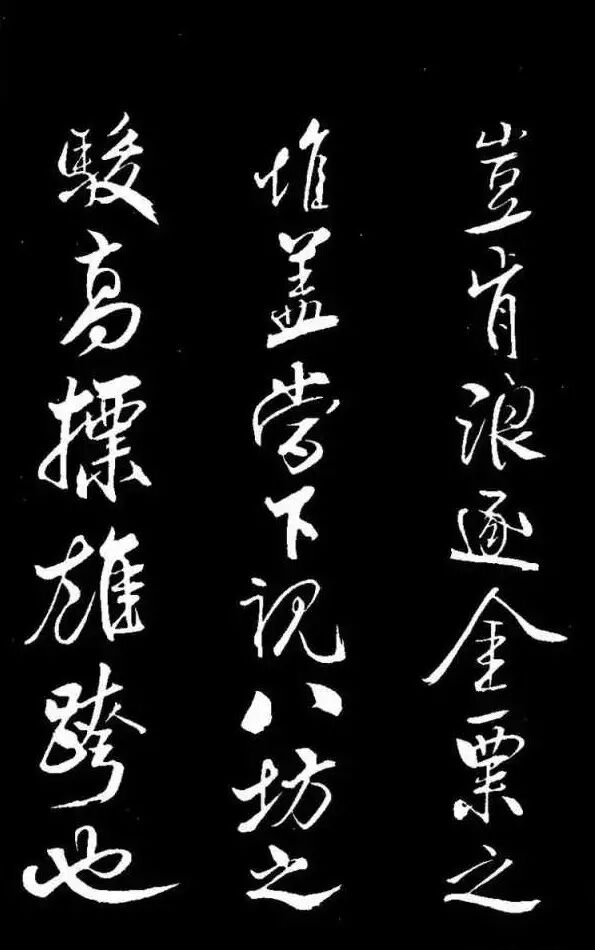 豈肯浪逐金粟之
堆盖嘗下視八坊之
駿高摽雄跨也